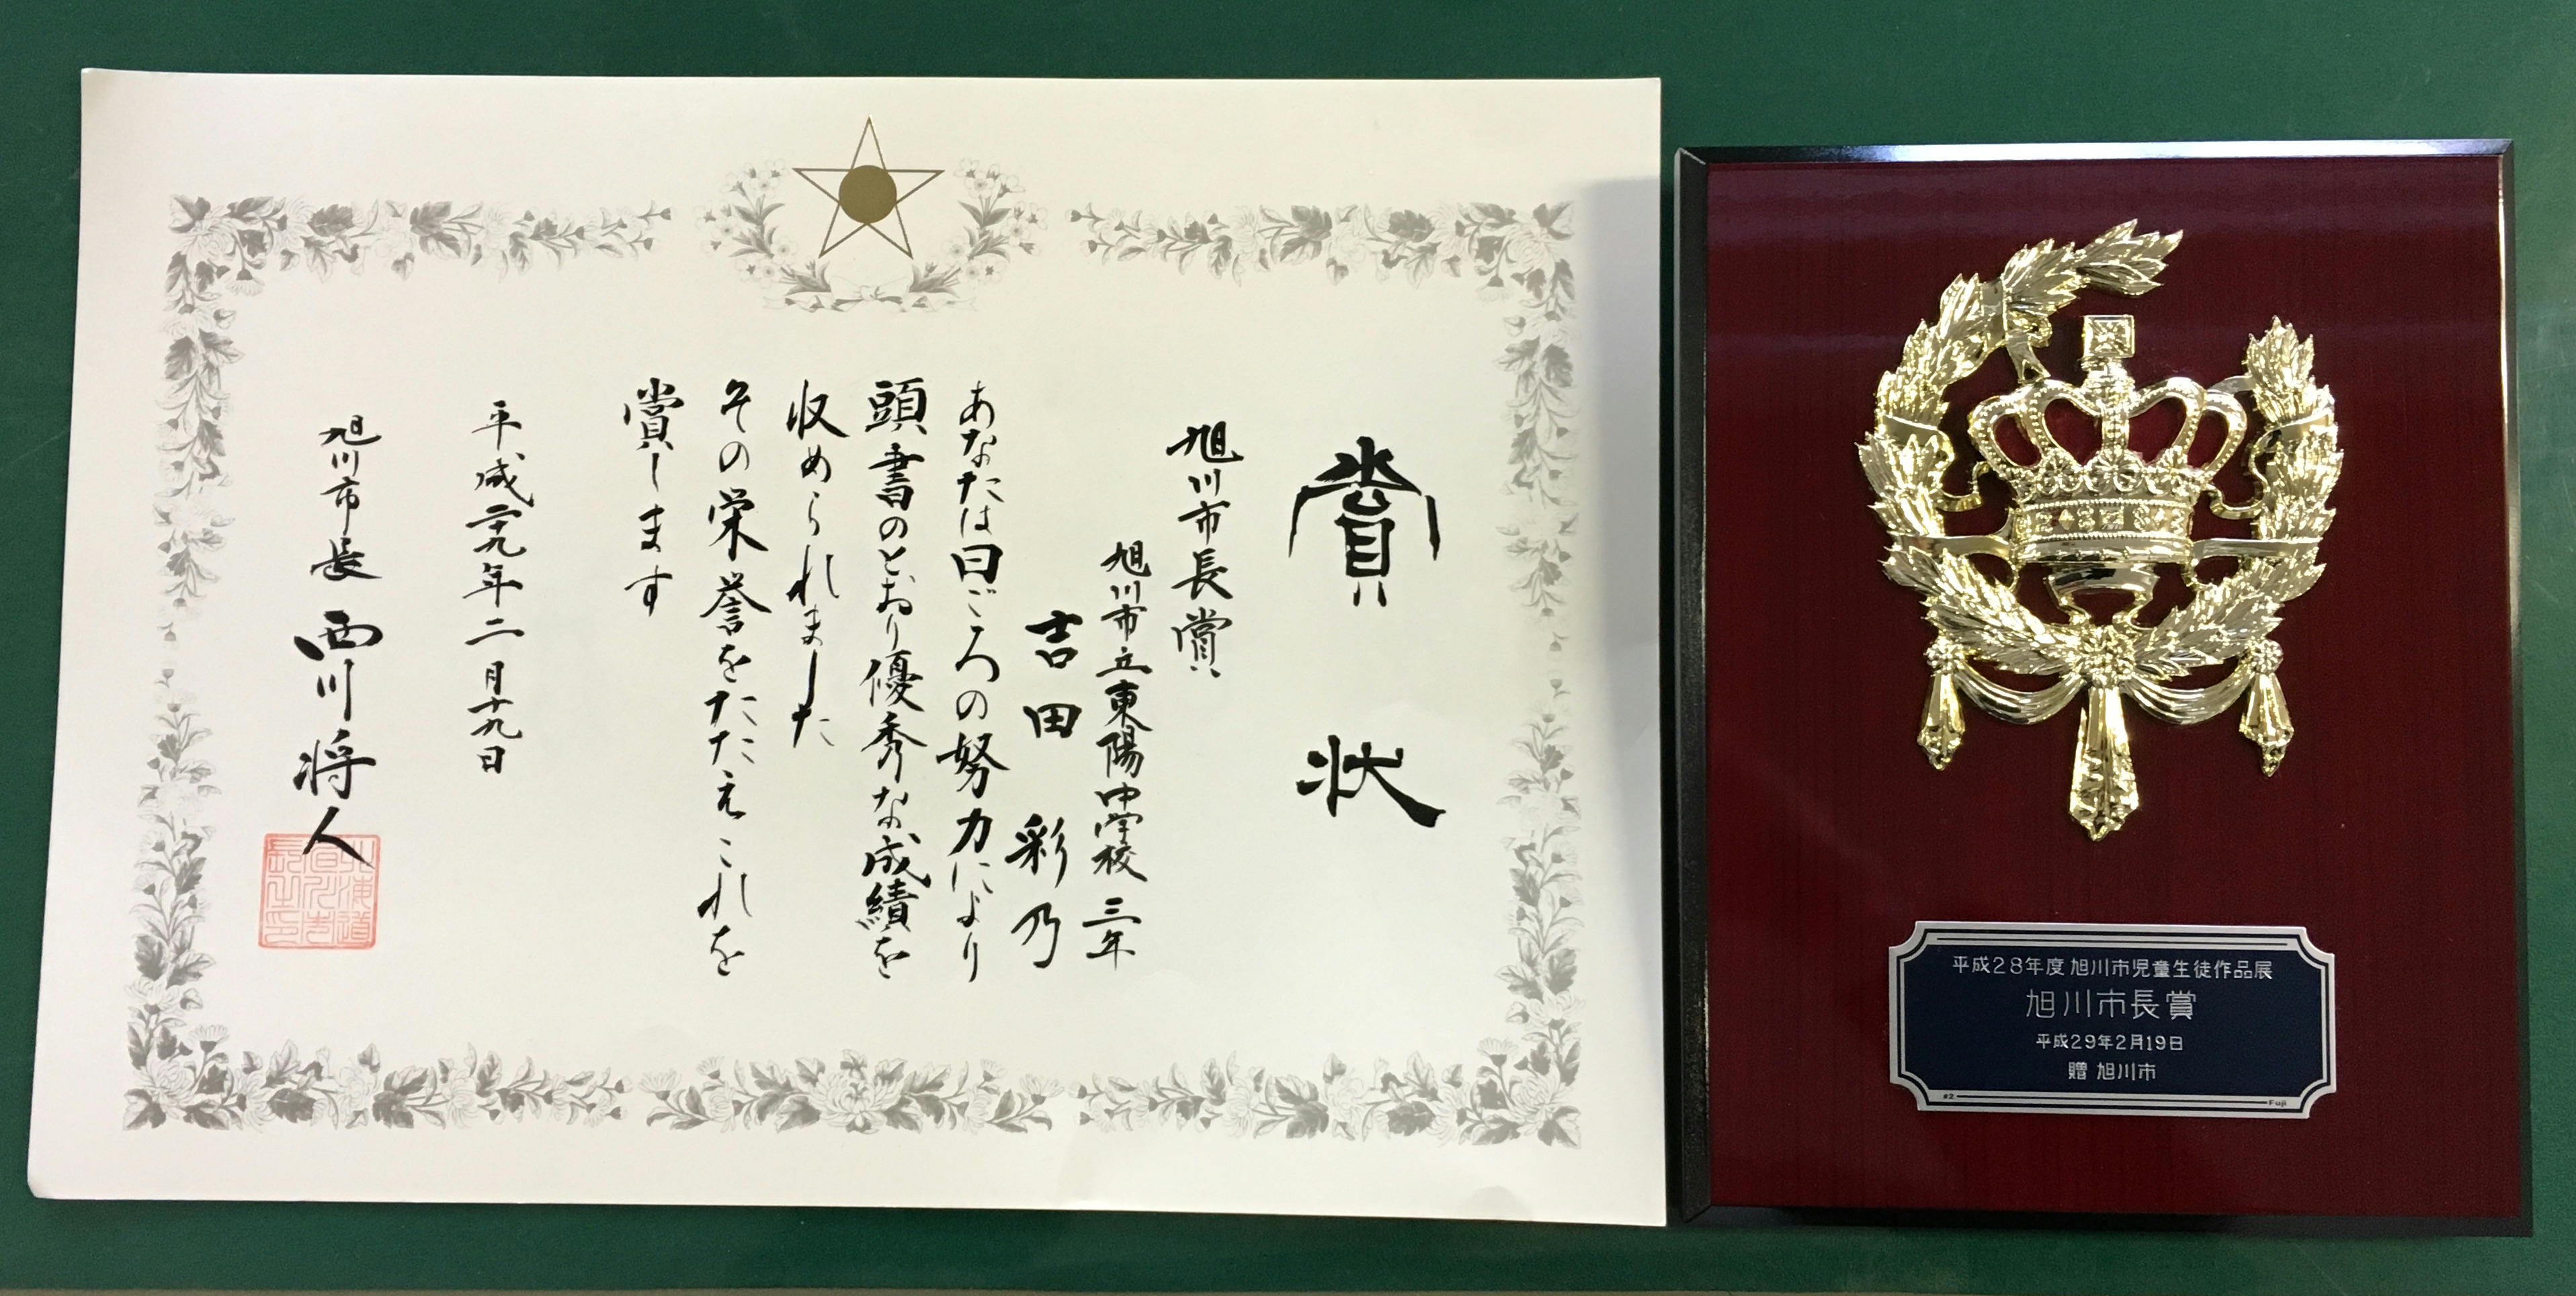 賞状
旭川市長賞
旭川市立東陽中学校 三年
吉田 彩乃
あなたは日ごろの努力により
頭書のとおり優秀な成績を
収められました
その栄誉をたたえこれを
賞します
平成二十九年二月十九日
旭川市長 西川将人
北海道
旭川市
長之印
平成28年度 旭川市児童生徒作品展
旭川市長賞
平成29年2月19日
贈 旭川市
#2
Fuji